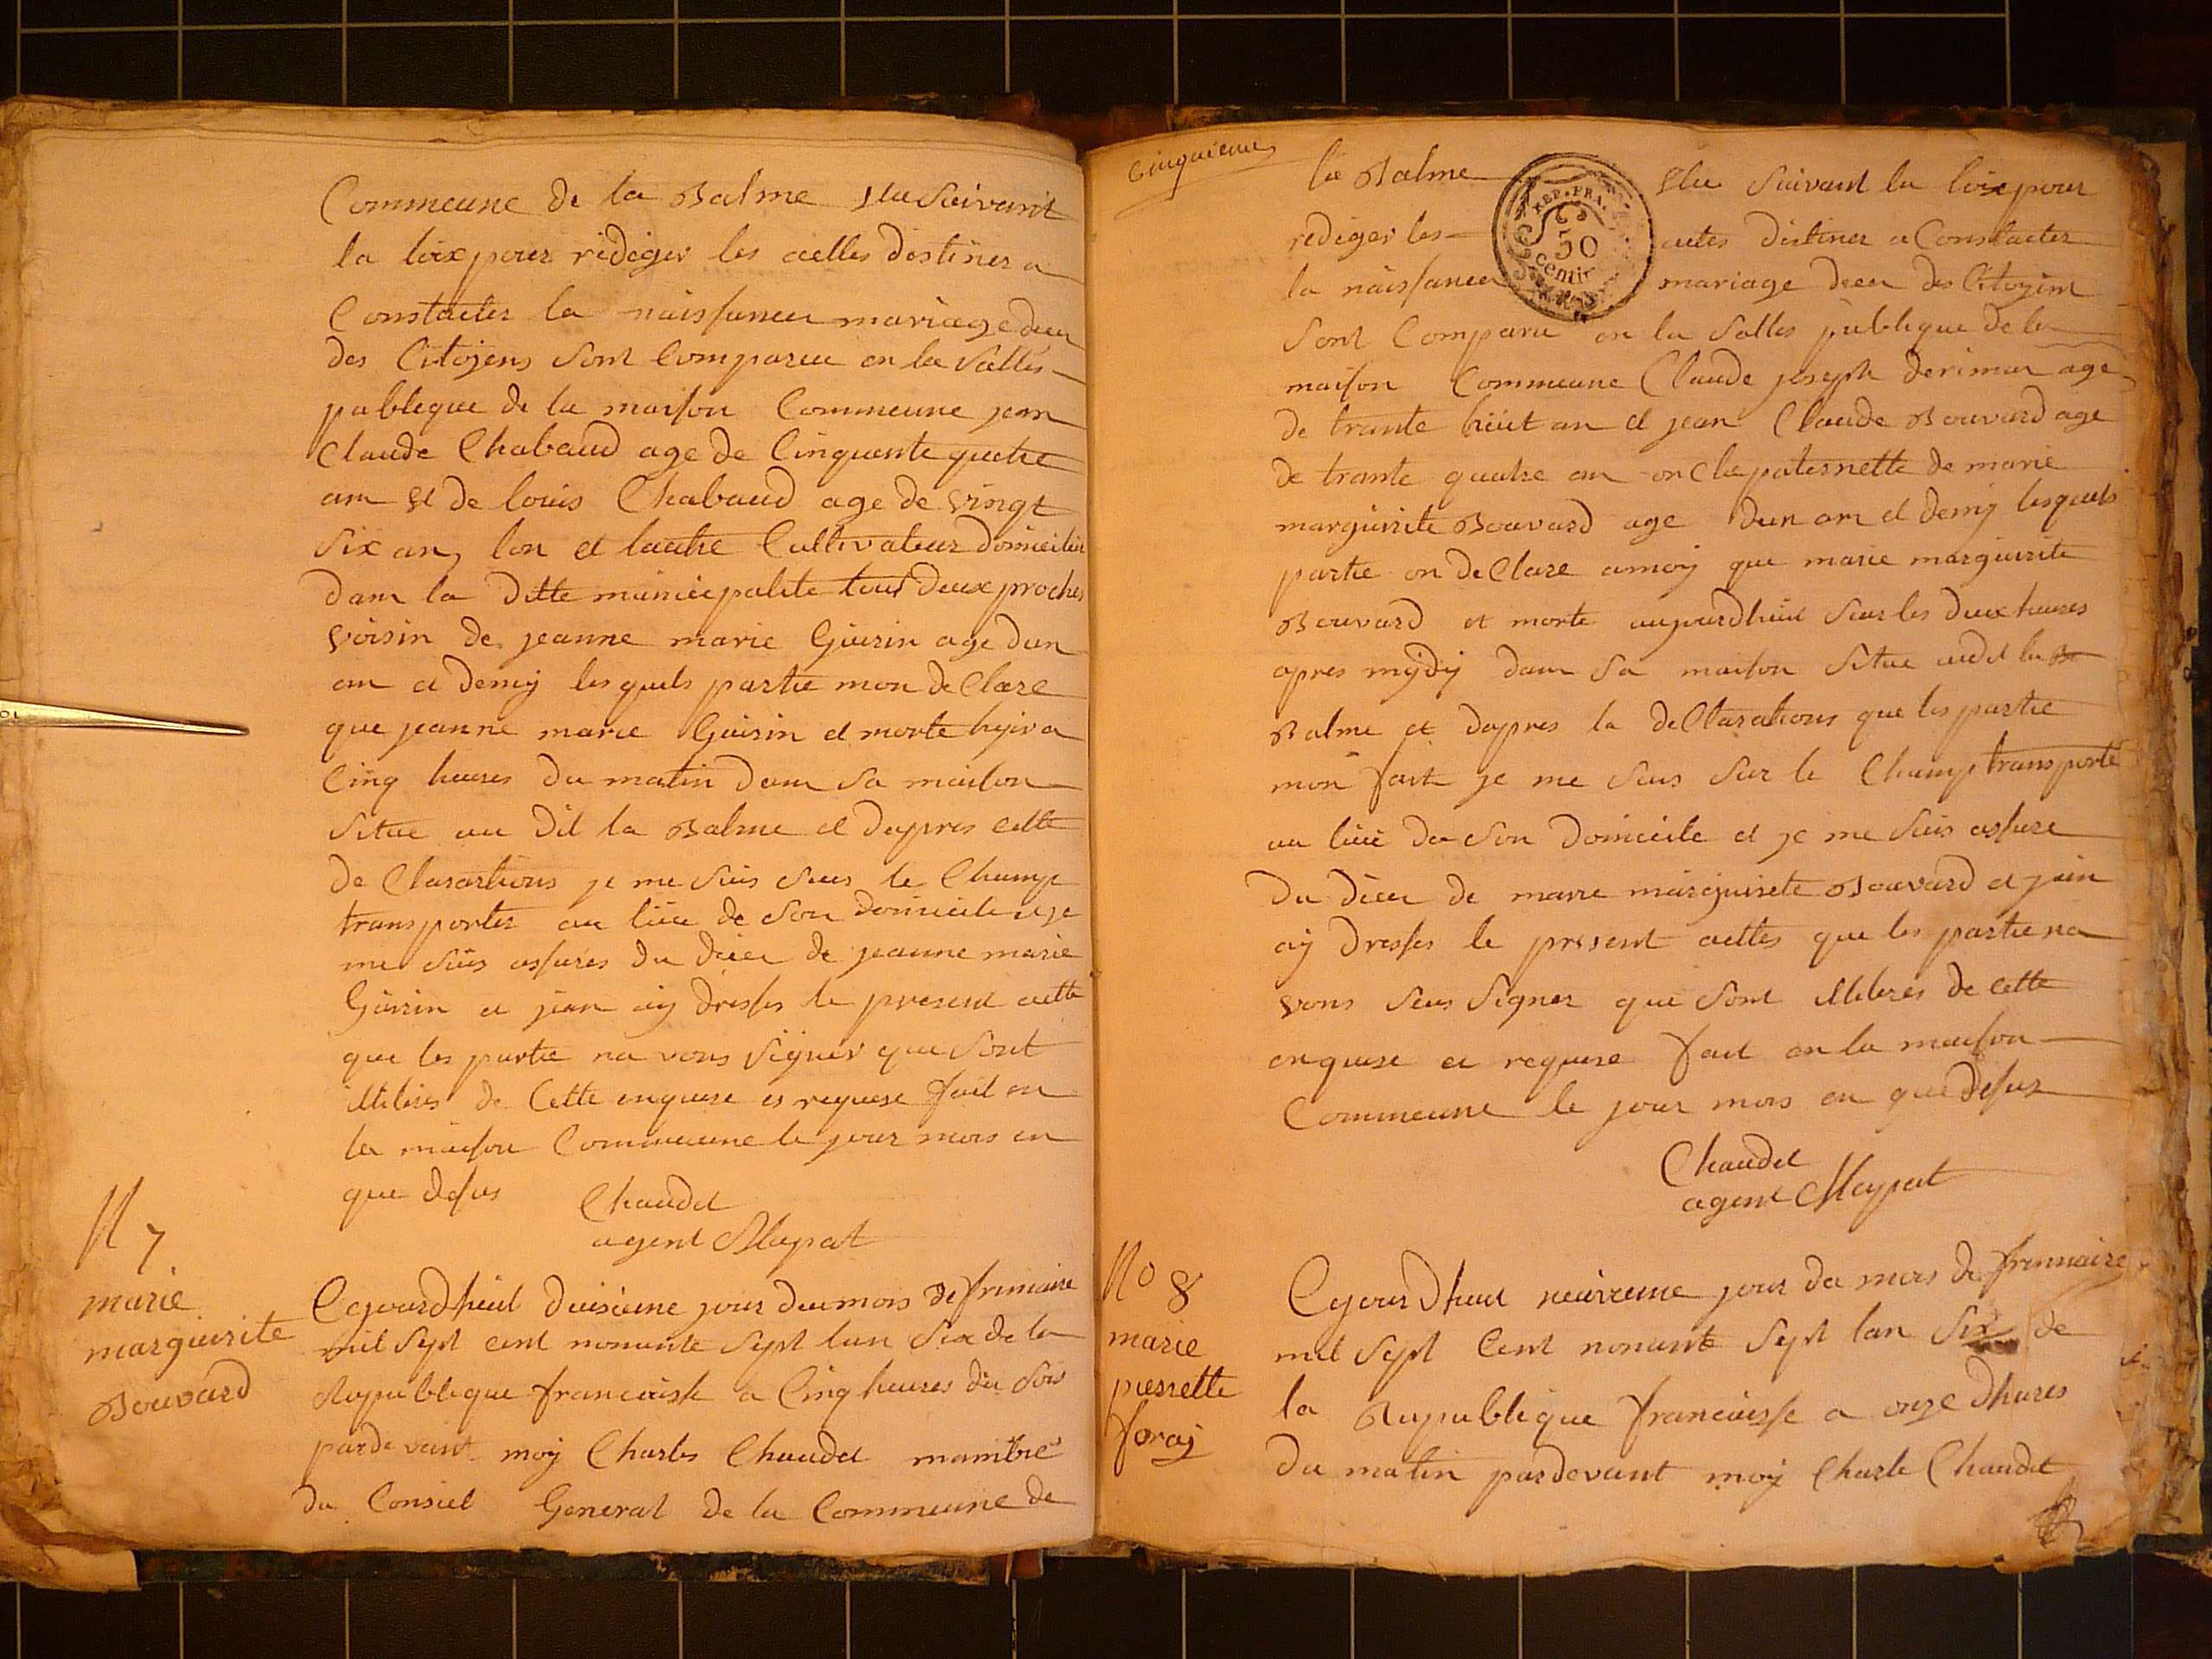 Commeune de la Balme Elu Suivant
la loix pour rediger les actles destines a
Constatter la naissancu mariage deu
des Citoyens sont Comparu en la Salles
publeque de la maison Commeune jean
Claude Chabaud age de Cinquante quatre
an et de louis Chabaud age de vingt
Six an, lon et lautre Cultivateur domicilie
dam la ditte municipalite tous deux proches
voisin de jeanne marie Guirin age dun
an et demÿ lesquels partie mon de Clare
que jeanne marie Guirin et morte hyer a
Cinq heures du matin dam sa maison
Situe au dit la Balme et dapres cette
de Clarartions je me suis sur le Champ
transporter au lieu de son domicile et je
me suis assures du decer de jeanne marie
Guirin et jean aÿ dresses le present actte
que les partie na vons signer que sont
illiteres de Cette enquere es requere fait en
la maison Commeune le jour mois en
que desus
Chaudet
agent Maypat
N 7
marie
marguirite
Bouvard
Cejourdhuit deuisieme jour du mois de frimaire
mil Sept cent nonante Sept lan Six de la
Republeque francaisse a Cinq heures du soir
par de vant moÿ Charles Chaudet mambre
du Consiel General de la Commeune de
Cinquieme
la Balme Elu Suivant la loix pour
REP. FRA.
50
centi
rediger les actes distines a Constatter
la naissancu mariage decu des Citoyens
Sont Comparu en la Salles publeque de la
maison Commeune Claude joseph derimer age
de trante huit an et jean Claude Bouvard age
de trante quatre an oncle paternelle de marie
marguirite Bouvard age dun an et demÿ lesquels
partie on de Clare amoÿ que marie marguirite
Bouvard et morte aujourdhuit sur les deux heures
apres mÿdÿ dam sa maison situe audit la
Balme et dapres la de Clarations que les partie
mon fait je me suis sur le Champ transporte
au lieu du son domicile et je me suis assure
du decer de marie marguirete Bouvard et jan
aÿ dresses le present acttes que les partie na
vons sus signer que sont illiteres de cette
enquere et requere fait en la maison
Commeune le jour mois en que desus
Chaudet
agent Maypat
No 8
marie
pierrette
foraÿ
Cejourdhuit neuvieme jour du mois de frimaire
mil Sept Cent nonante Sept lan Six de
la Republique francaisse a onze dhures
du matin pardevant moÿ Charle Chaudet